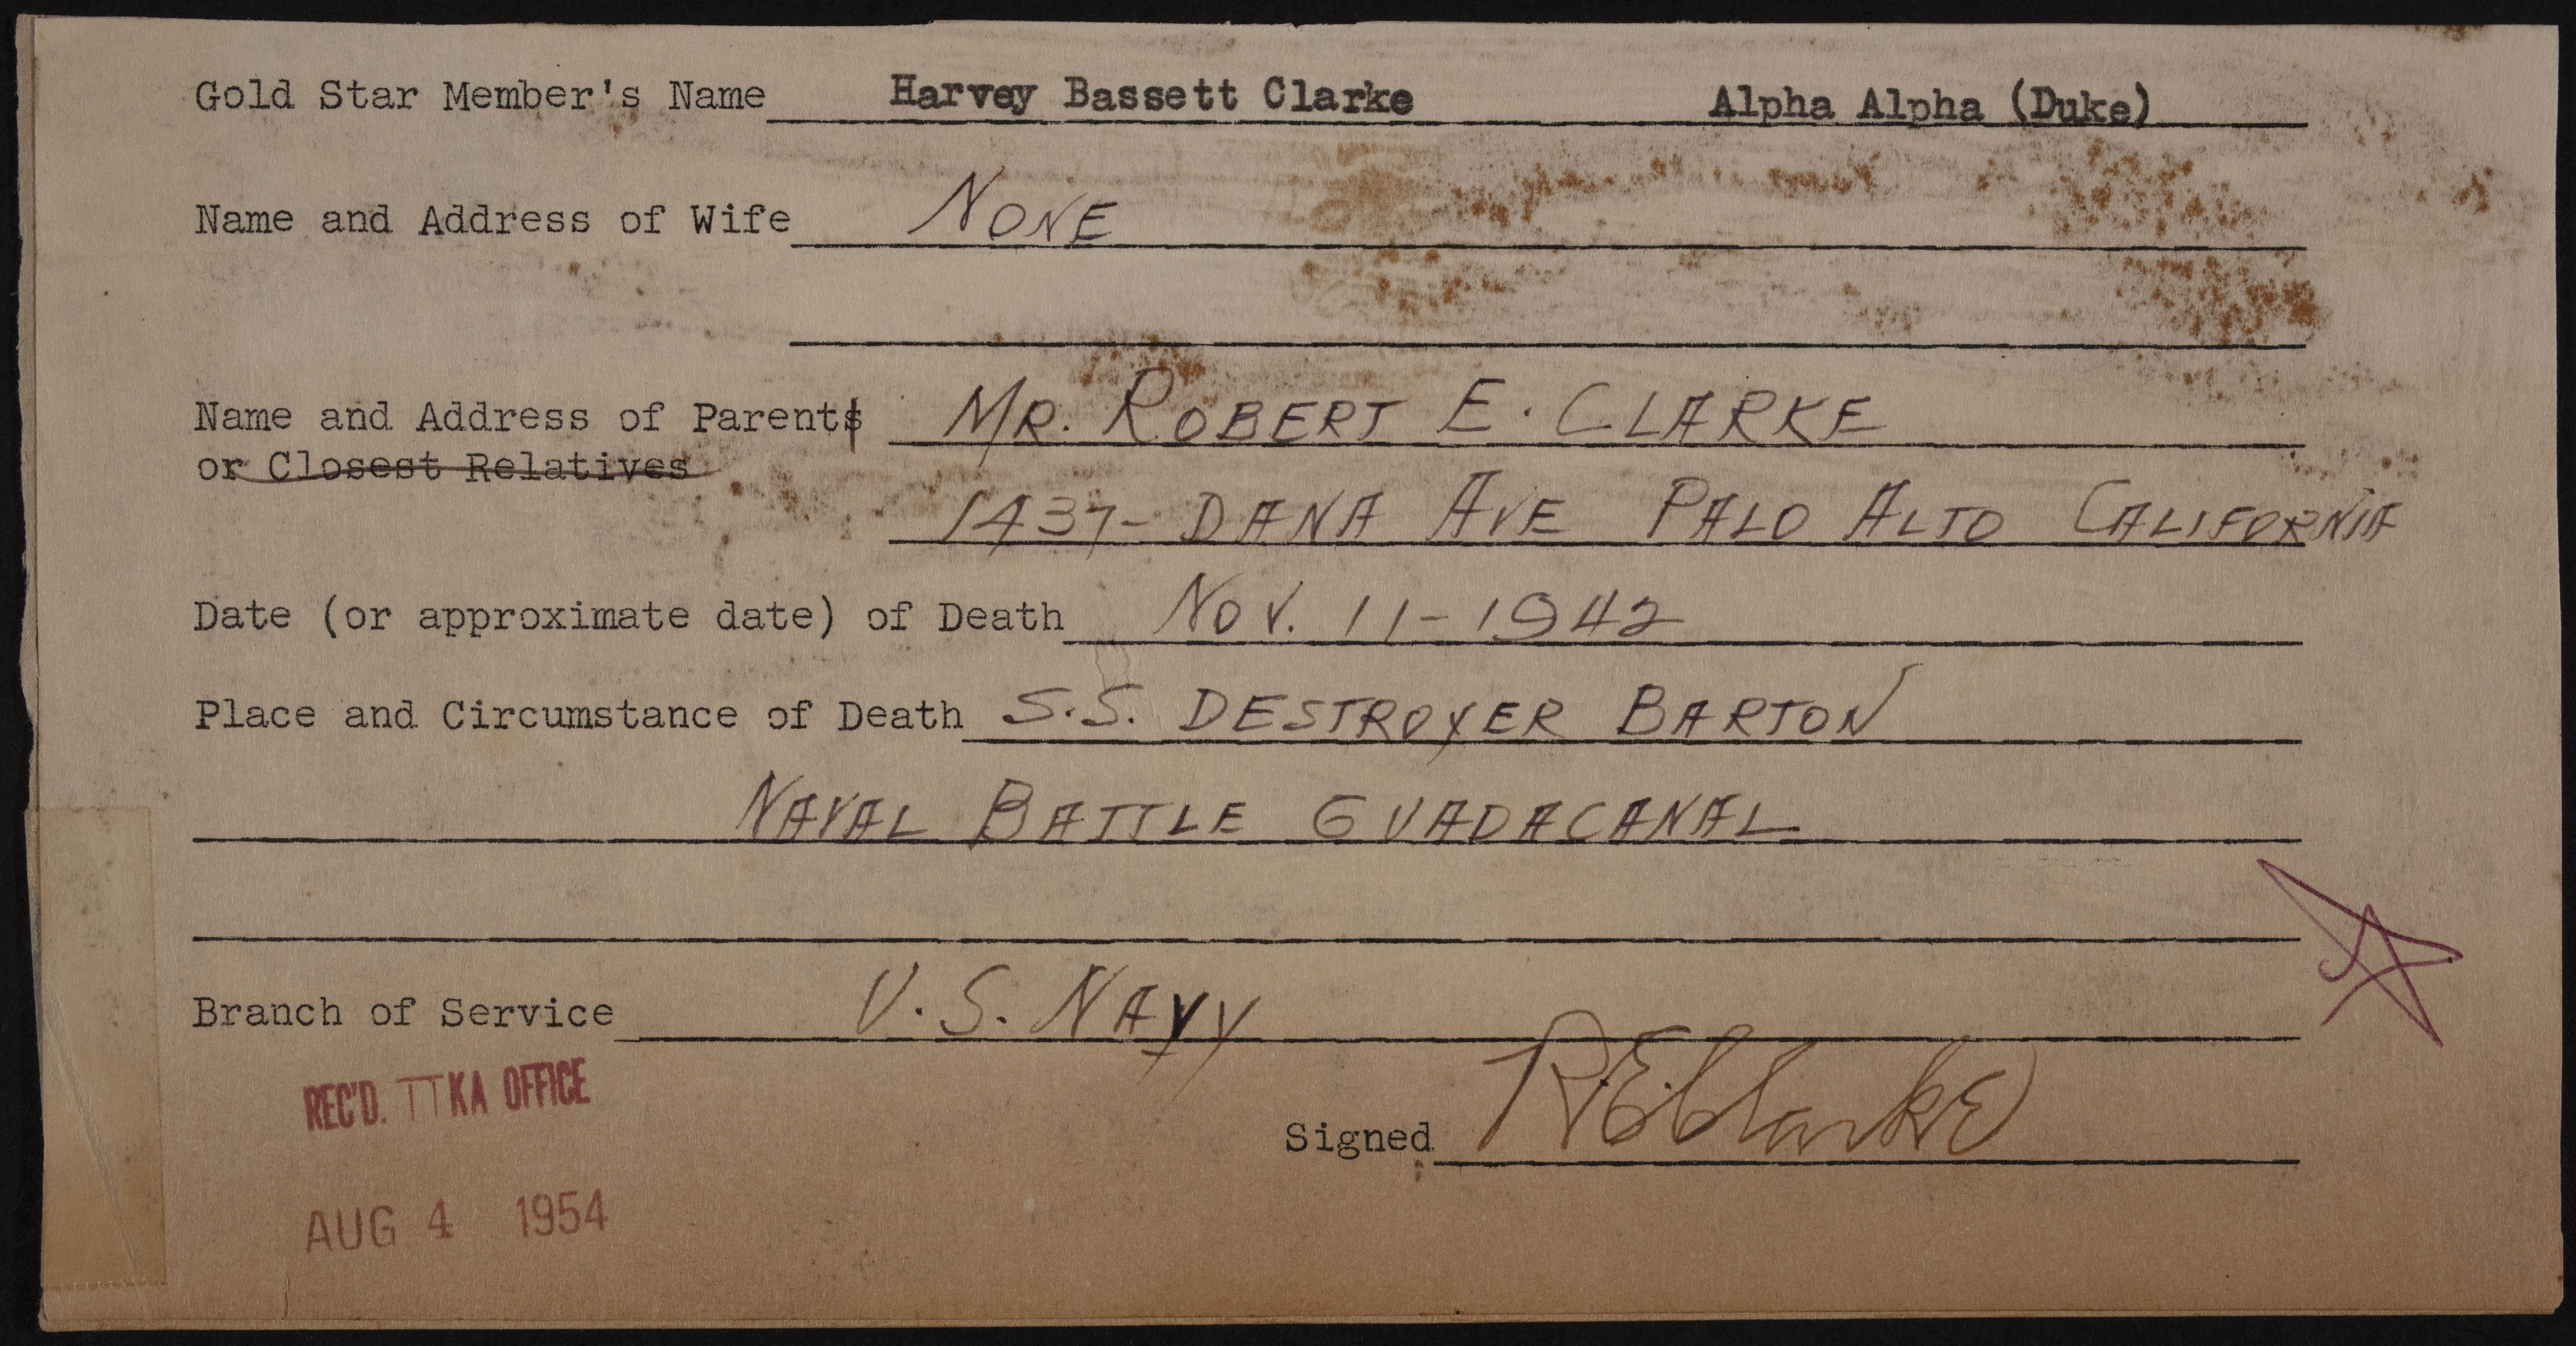 Gold Star Member's Name Harvey Bassett Clarke Alpha Alpha (Duke)
Name and Address of Wife NONE
Name and Address of Parents MR. ROBERT E. CLARKE
or Closest Relatives
1437- DANA AVE PALO ALTO CALIFORNIA
Date (or approximate date) of Death NOV. 11-1942
Place and Circumstance of Death S.S. DESTROYER BARTON
NAVAL BATTLE GUADACANAL
Branch of Service U.S. NAVY
REC'D. TTKA OFFICE
Signed R.E. Clarke
AUG 4 1954